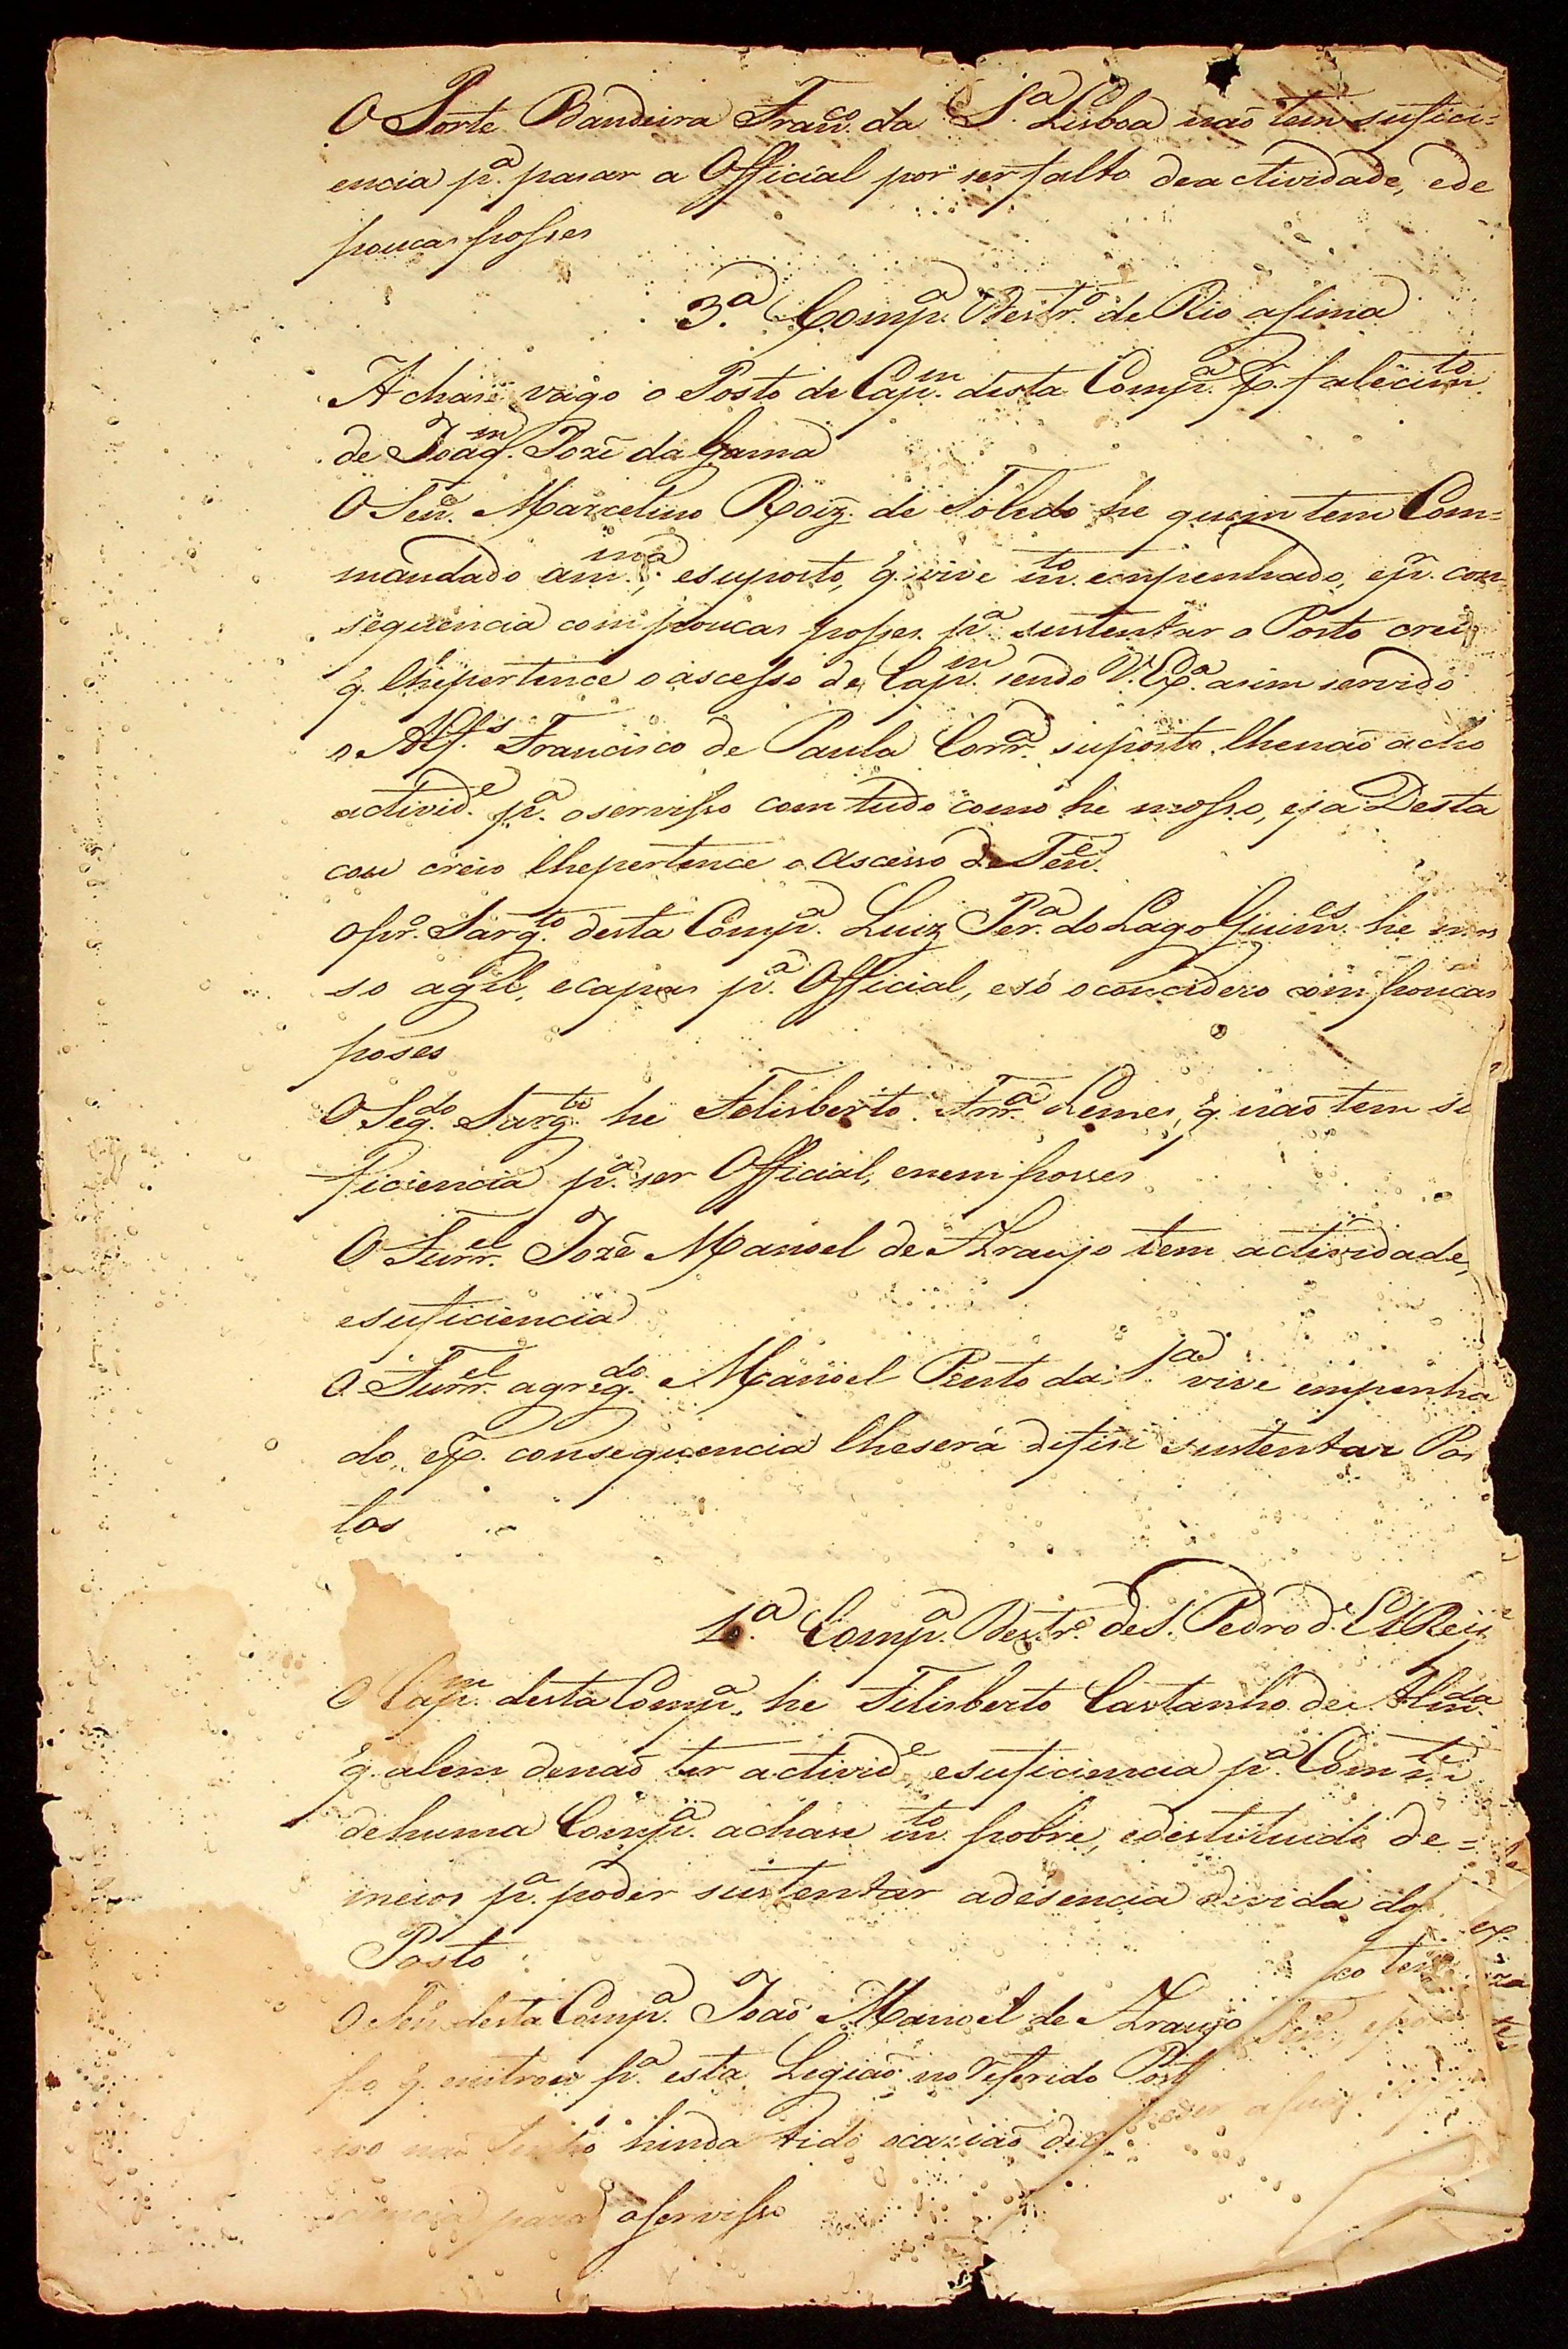 O Porte Bandeira Fran.co da S.a Lisboa não tem sufici=
encia p.a pasar a Official por ser falto de actividade, e de
poucas posses
3.a Comp.a Destr.o de Rio asima
Achase vago o Posto de Cap.m desta Comp.a P. falecim.to
de Joaq.m Jozé da Gama
O Ten.e Marcelino Roiz de Toledo he quem tem Com=
mandado am.ma, e suposto, q. vive m.to empenhado, e p.r con=
sequencia com poucas posses p.a sustentar o Posto creio
q. lhe pertence o ascesso de Cap.m sendo V. Ex.a asim servido
o Alf.s Francisco de Paula Corr.a suposto lhe não acho
activid.e p.a o servisso com tudo como he mosso, e ja Desta
cou creio lhe pertence o Ascesso de Ten.e
O pr.o Sarg.to desta Comp.a Luiz Per.a do Lago Guim.es he mos
so agil, e capas p.a Official, e só o concidero com poucas
poses
O Seg.do Sarg.to he Felisberto Frr.a Lemes, q. não tem su
ficiencia p.a ser Official, e nem posses
O Furr.el Jozé Manoel de Araujo tem actividade,
e suficiencia
O Furr.el agreg.do Manoel Pinto da S.a vive empenha
do, e P. consequencia lhe será deficil sustentar Pos
tos
1.a Comp.a Destr.o de S. Pedro d' El Rey
O Cap.m desta Comp.a he Felisberto Castanho de Alm.da
q. alem de não ter activid.e e suficiencia p.a Com.te
de huma Comp.a achase m.to pobre, e destituido de=
meios p.a poder sustentar a desencia divida do
Posto
O Ten.e desta Comp.a João Manoel de Araujo
po q. entrou p.a esta Legião no referido Post
isso não tenho hinda tido ocazião de
ciencia para o servisso